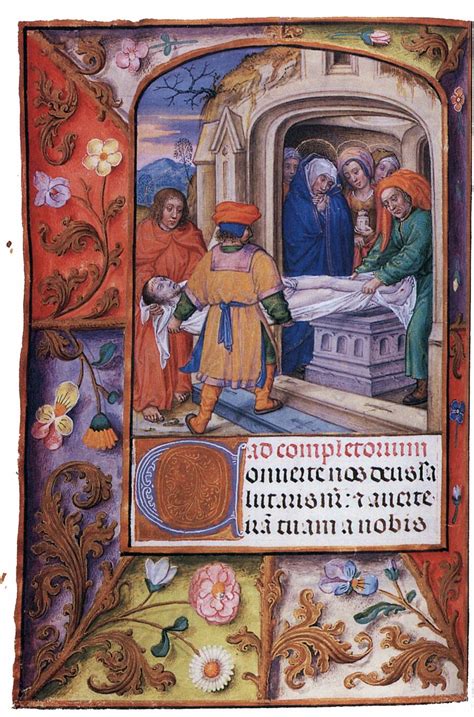 Ad completorium
Conuerte nos deus sa
lutaris nr̄: & auerte
irā tuam a nobis